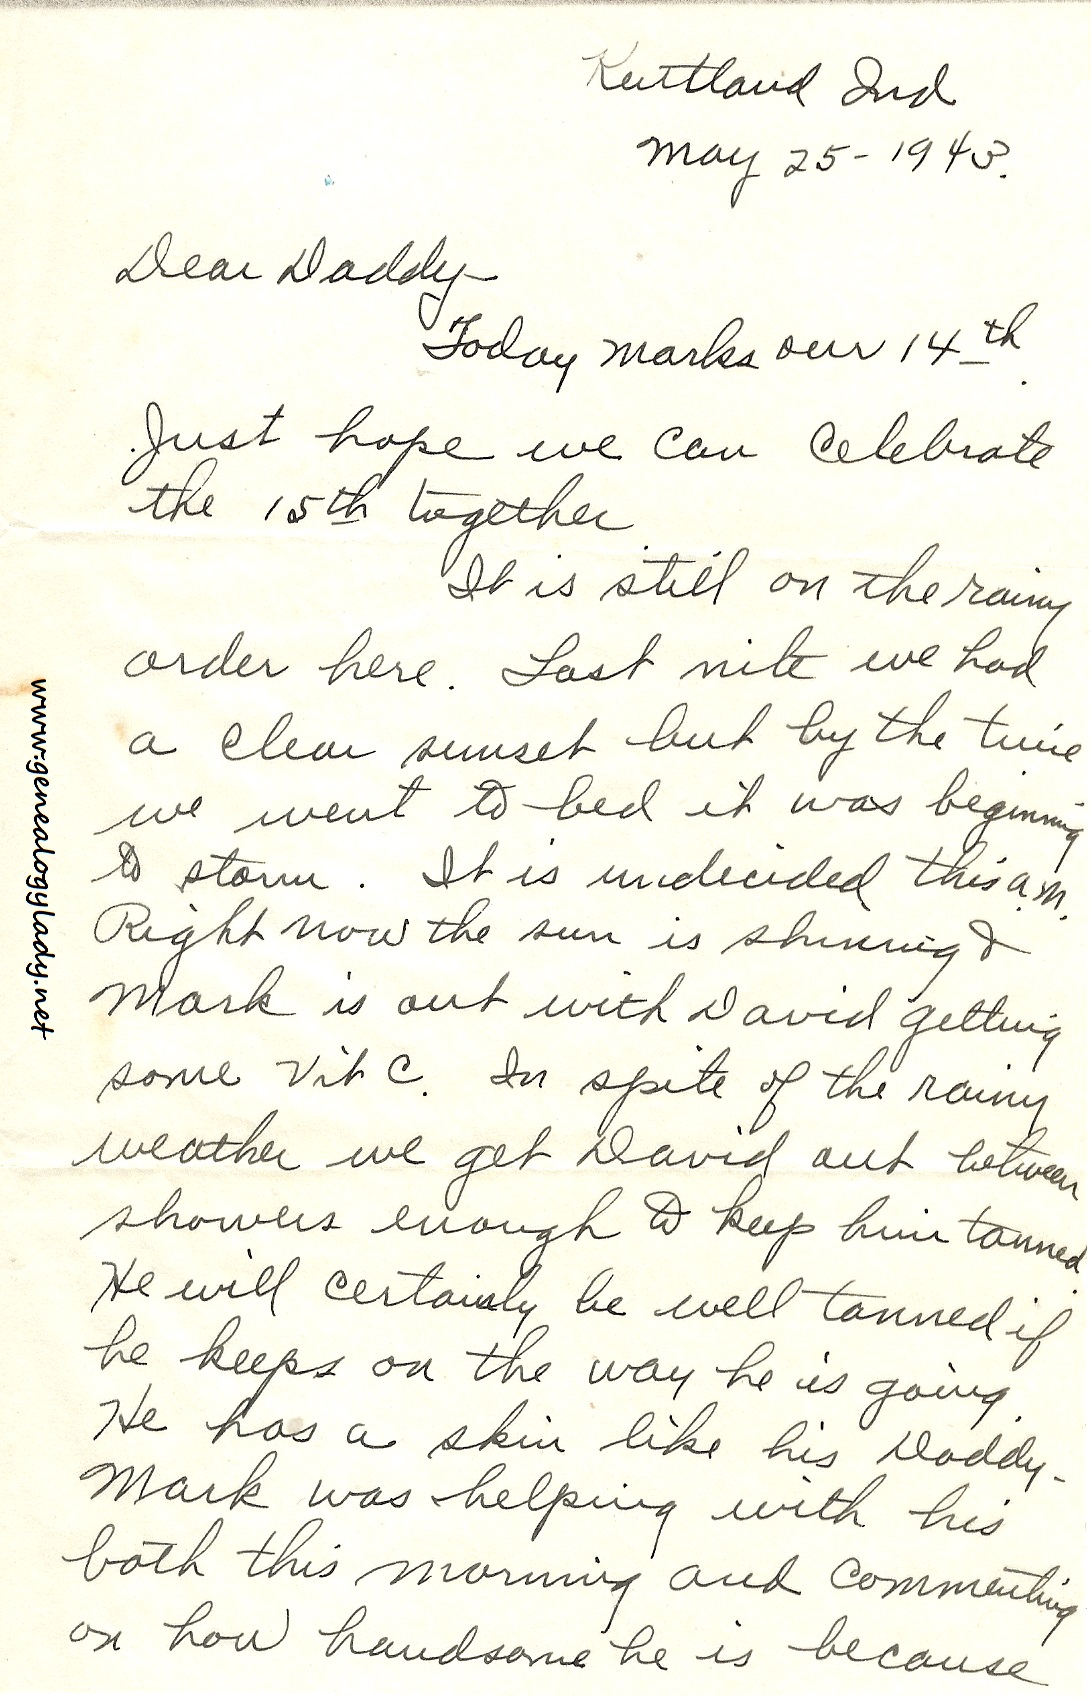 Kentland Ind
May 25-1943.
Dear Daddy-
Today marks our 14th.
Just hope we can celebrate
the 15th together
It is still on the rainy
order here. Last nite we had
a clear sunset but by the time
we went to bed it was beginning
to storm. It is undecided this a.m.
Right now the sun is shinning &
Mark is out with David getting
some Vit C. In spite of the rainy
weather we get David out between
showers enough to keep him tanned.
He will certainly be well tanned if
he keeps on the way he is going.
He has a skin like his Daddy-
Mark was helping with his
bath this morning and commenting
on how handsome he is because
www.genealogylady.net